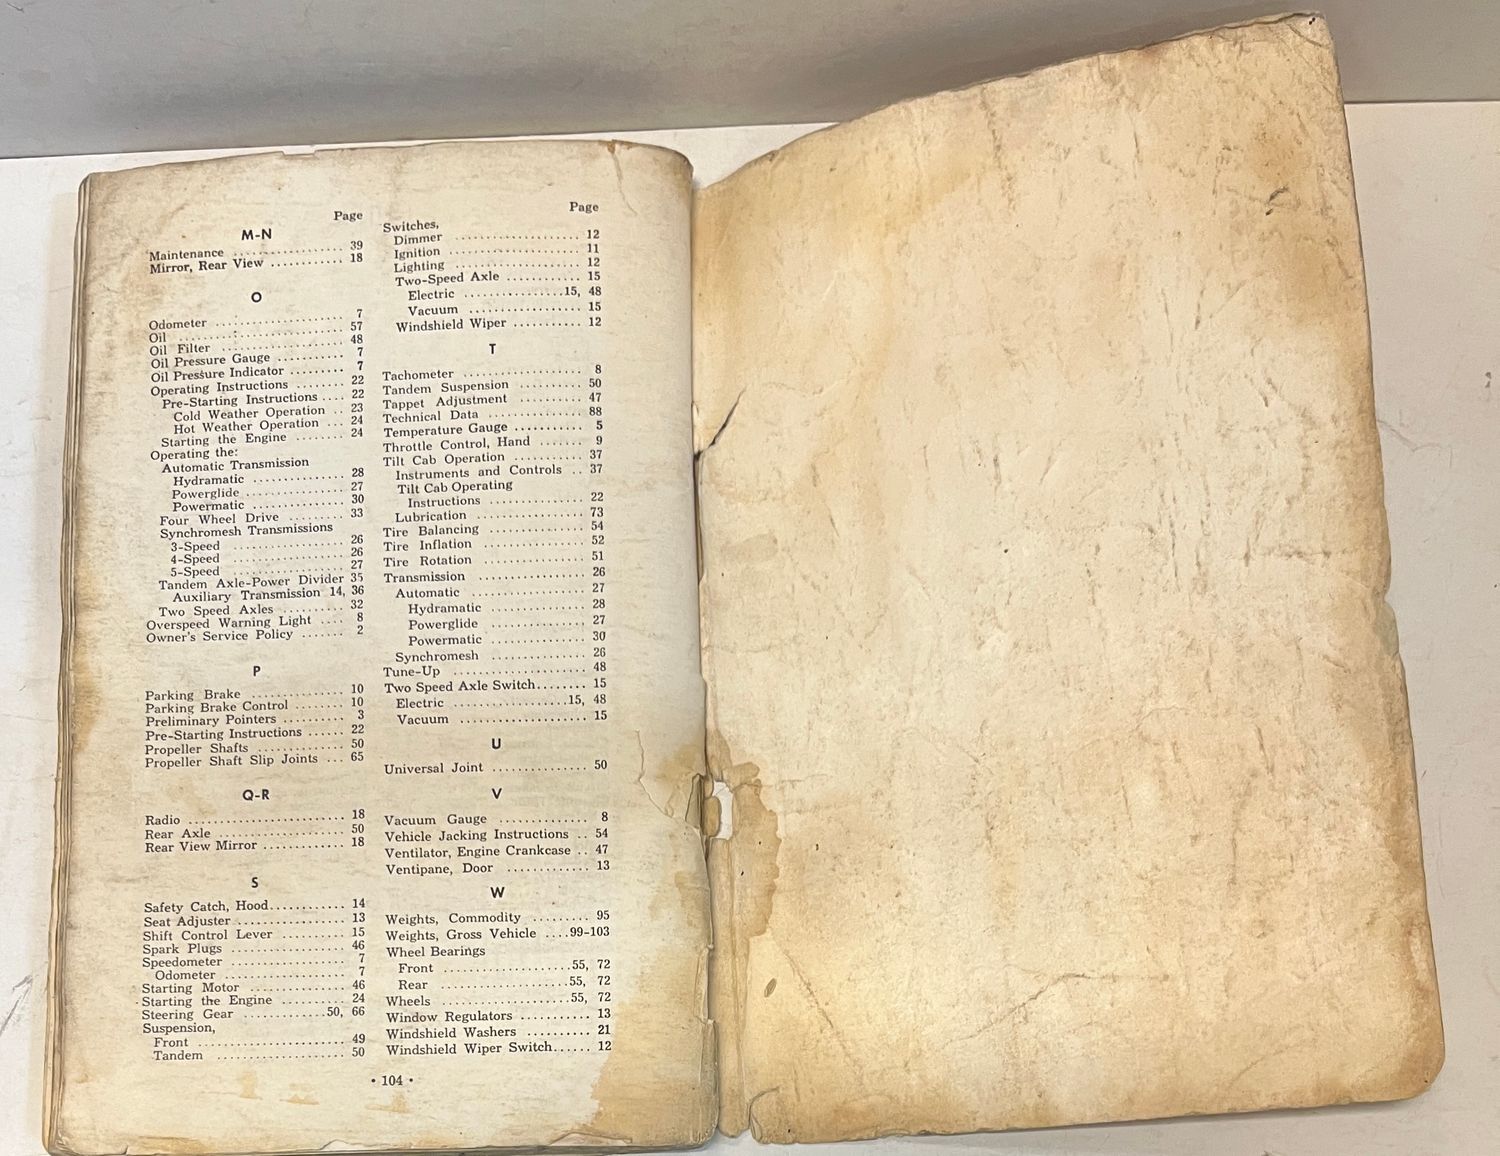 Page
M-N
Maintenance .................. 39
Mirror, Rear View ........... 18
O
Odometer .................... 7
Oil .......................... 57
Oil Filter .................... 48
Oil Pressure Gauge .......... 7
Oil Pressure Indicator ........ 7
Operating Instructions ........ 22
Pre-Starting Instructions .... 22
Cold Weather Operation .. 23
Hot Weather Operation ... 24
Starting the Engine ........ 24
Operating the:
Automatic Transmission
Hydramatic .............. 28
Powerglide ............... 27
Powermatic .............. 30
Four Wheel Drive ......... 33
Synchromesh Transmissions
3-Speed ................. 26
4-Speed ................. 26
5-Speed ................. 27
Tandem Axle-Power Divider 35
Auxiliary Transmission 14, 36
Two Speed Axles .......... 32
Overspeed Warning Light .... 8
Owner's Service Policy ....... 2
P
Parking Brake ............... 10
Parking Brake Control ........ 10
Preliminary Pointers .......... 3
Pre-Starting Instructions ...... 22
Propeller Shafts .............. 50
Propeller Shaft Slip Joints ... 65
Q-R
Radio ......................... 18
Rear Axle .................... 50
Rear View Mirror ............. 18
S
Safety Catch, Hood............ 14
Seat Adjuster ................. 13
Shift Control Lever .......... 15
Spark Plugs .................. 46
Speedometer .................. 7
Odometer ................... 7
Starting Motor ............... 46
Starting the Engine .......... 24
Steering Gear .............50, 66
Suspension,
Front ....................... 49
Tandem .................... 50
Page
Switches,
Dimmer .................... 12
Ignition .................... 11
Lighting .................... 12
Two-Speed Axle ............ 15
Electric ................15, 48
Vacuum .................. 15
Windshield Wiper ........... 12
T
Tachometer ................... 8
Tandem Suspension .......... 50
Tappet Adjustment ........... 47
Technical Data ............... 88
Temperature Gauge ........... 5
Throttle Control, Hand ....... 9
Tilt Cab Operation ........... 37
Instruments and Controls .. 37
Tilt Cab Operating
Instructions .............. 22
Lubrication ................. 73
Tire Balancing ............... 54
Tire Inflation ................ 52
Tire Rotation ................ 51
Transmission ................. 26
Automatic .................. 27
Hydramatic ............... 28
Powerglide ............... 27
Powermatic ............... 30
Synchromesh ............... 26
Tune-Up ..................... 48
Two Speed Axle Switch........ 15
Electric ..................15, 48
Vacuum ................... 15
U
Universal Joint ............... 50
V
Vacuum Gauge .............. 8
Vehicle Jacking Instructions .. 54
Ventilator, Engine Crankcase .. 47
Ventipane, Door ............. 13
W
Weights, Commodity ......... 95
Weights, Gross Vehicle ....99-103
Wheel Bearings
Front ....................55, 72
Rear .....................55, 72
Wheels ....................55, 72
Window Regulators ........... 13
Windshield Washers .......... 21
Windshield Wiper Switch...... 12
• 104 •